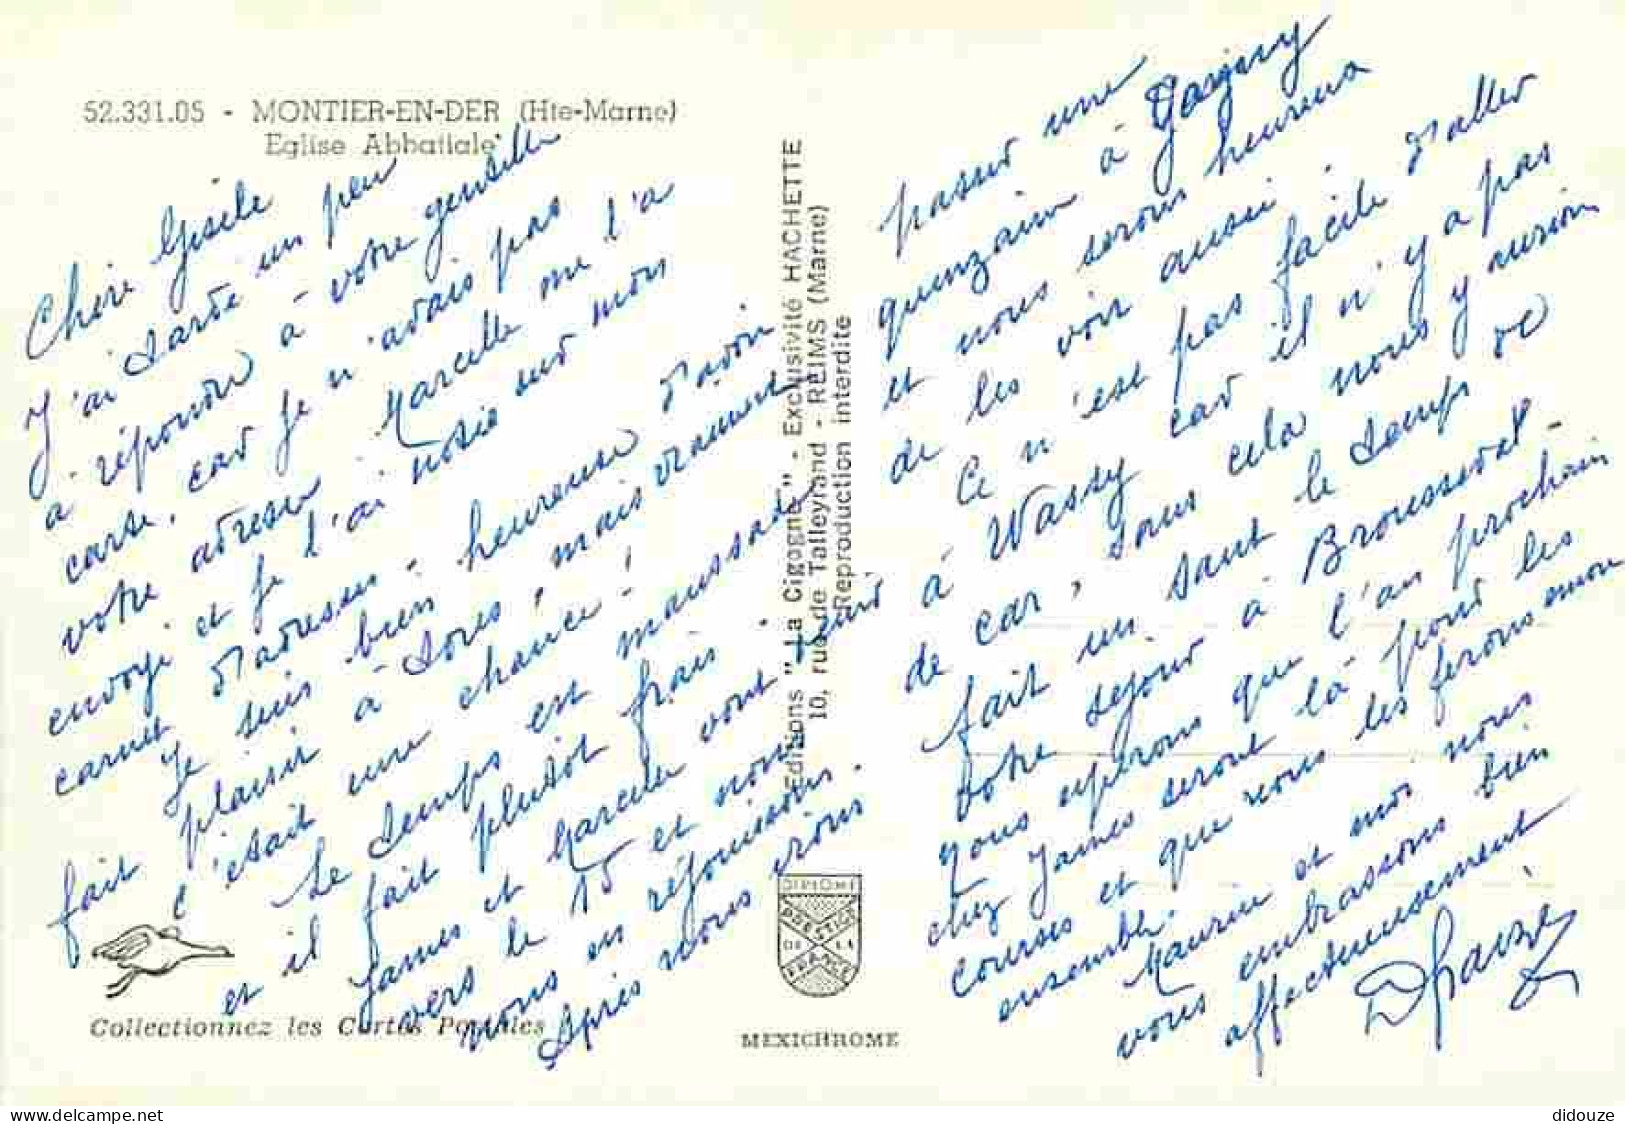 52.331.05 - MONTIER-EN-DER (Hte-Marne)
Eglise Abbatiale
Chère Gisèle
J'ai tardé un peu
à répondre à votre gentille
carte, car je n'avais pas
votre adresse Marcelle me l'a
envoyé et je l'ai notée sur mon
carnet d'adresses.
Je suis bien heureuse d'avoir
fait plaisir à tous, mais vraiment
c'était une chance !
Le temps est maussade
et il fait plutôt frais.
James et Marcelle vont venir
vers le 15 et nous
nous en réjouissons.
Après nous irons
passer une
quinzaine à Gagny
et nous serons heureux
de les voir aussi.
Ce n'est pas facile d'aller
à Wassy car il n'y a pas
de car, sans cela nous y aurions
fait un saut le temps de
votre séjour à Brousseval -
Nous espérons que l'an prochain
chez James seront là pour les
courses et que nous les ferons
ensemble.
Maurice et moi nous
vous embrassons bien
affectueusement
Editions "La Cigogne" - Exclusivité HACHETTE
10, rue de Talleyrand - REIMS (Marne)
Reproduction interdite
DIPLOME
PRESTIGE
DE LA
FRANCE
Collectionnez les Cartes Postales
MEXICHROME
delcampe.net
didouze